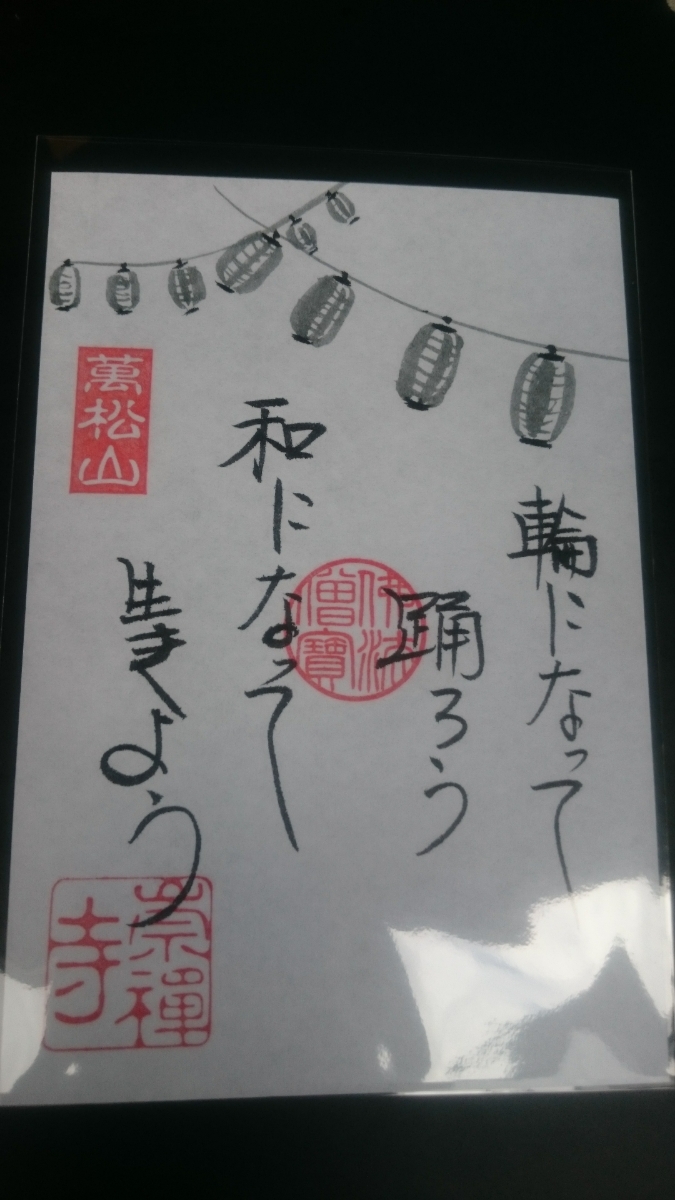 輪になって
踊ろう
和になって
生きよう
萬松山
佛法
僧寳
崇禪
寺